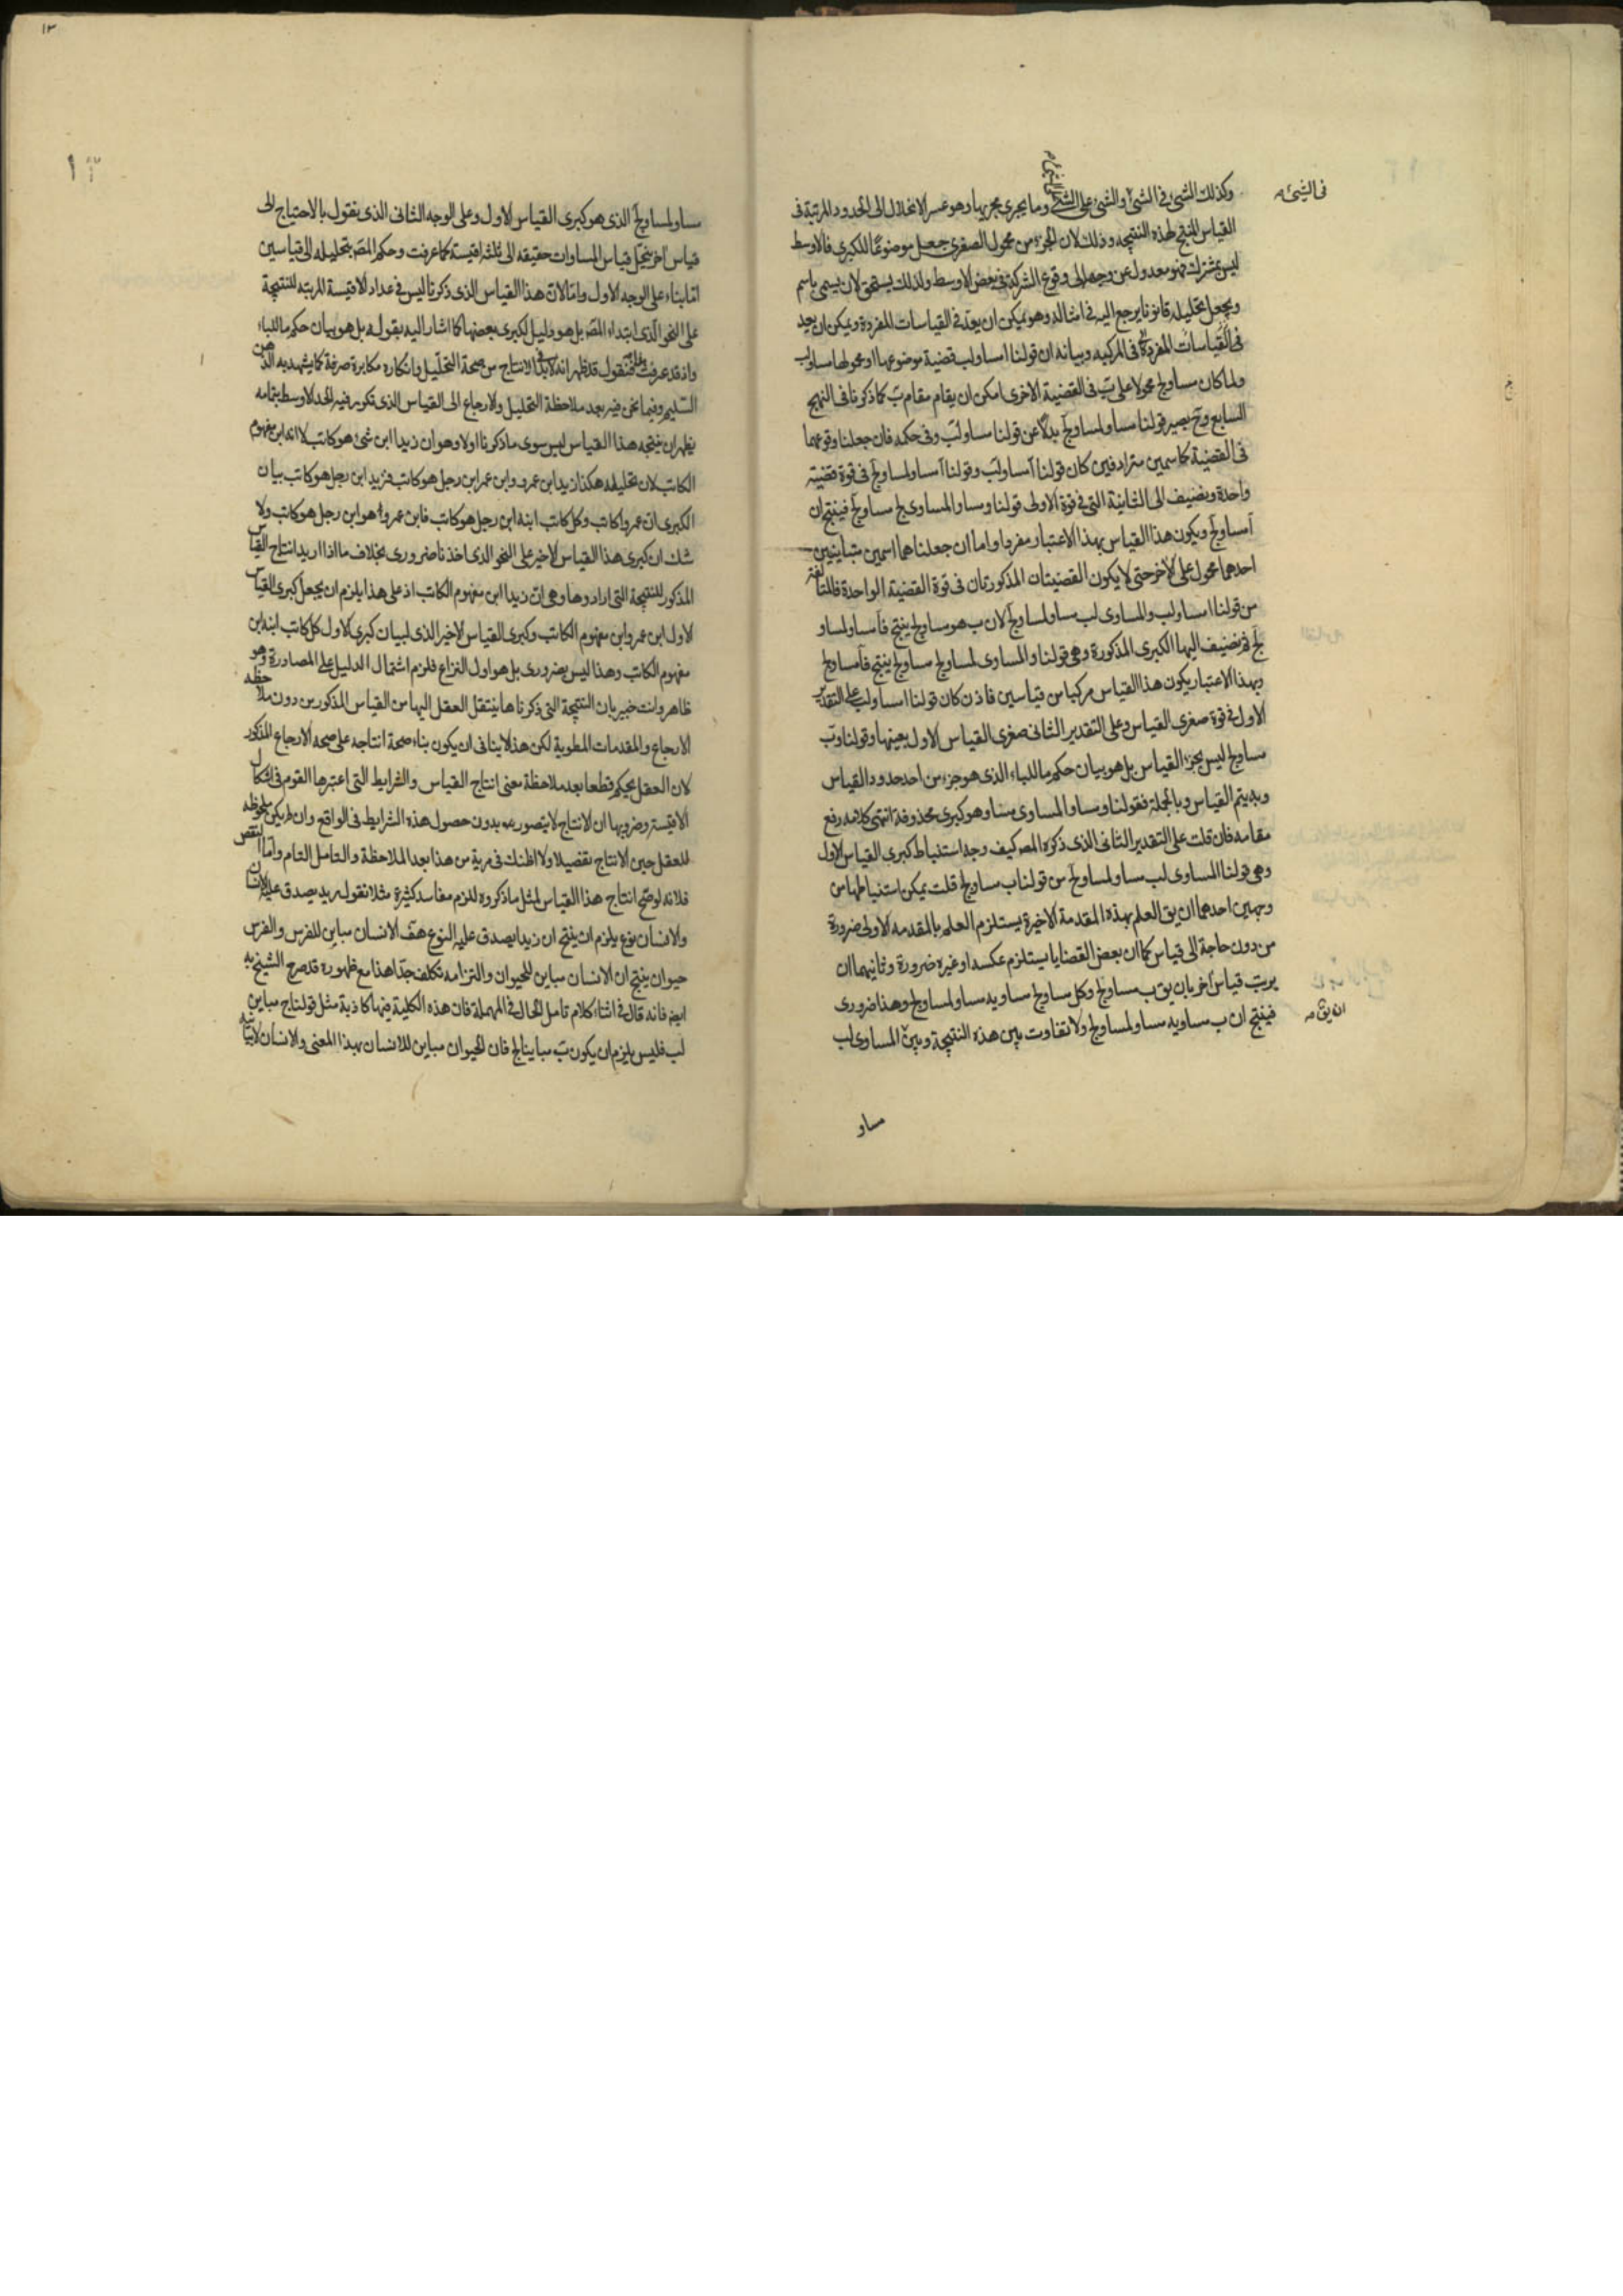 وكذلك الشئ فى الشئ والشئ على الشئ وما يجرى مجريها وهو عسر الانحلال الى الحدود المرتبة فى
فى الشئ
القياس المنتج لهذه النتيجه وذلك لان الجزء من محمول الصغرى جعل موضوعا للكبرى فالاوسط
ليس بمشترك فهو معدول عن وجهه الى وقوع الشركة فى بعض الاوسط ولذلك يستحق لان يسمى باسم
ويجعل تحليله قانونا يرجع اليه فى امثاله وهو يمكن ان يعد فى القياسات المفردة ويمكن ان يعد
فى القياسات المركبه وبيانه ان قولنا ا مساو لب قضية موضوعها ا ومحمولها مساو لب
ولما كان مساو لج محمولا على ب فى القضية الاخرى امكن ان يقام مقام ب كما ذكرنا فى النهج
السابع وح يصير قولنا مساو لمساو لج بدلا عن قولنا مساو لب وفى حكمه فان جعلنا وقوعهما
فى القضية كاسمين مترادفين كان قولنا ا مساو لب وقولنا ا مساو لمساو لج فى قوة قضية
واحدة ونضيف الى الثانية التى فى قوة الاولى قولنا ومساو المساوى لج مساو لج فينتج ان
ا مساو لج ويكون هذا القياس بهذا الاعتبار مفردا واما ان جعلنا هما اسمين متباينين
احدهما محمول على الاخر حتى لا يكون القضيتان المذكورتان فى قوة القضية الواحدة فالمتالفة
من قولنا ا مساو لب والمساوى لب مساو لمساو لج لان ب هو مساو لج ينتج فا مساو لمساو
لج ثم نضيف اليها الكبرى المذكورة وهى قولنا والمساوى لمساو لج مساو لج ينتج فا مساو لج
وبهذا الاعتبار يكون هذا القياس مركبا من قياسين فاذن كان قولنا ا مساو لب على التقدير
الاول فى قوة صغرى القياس وعلى التقدير الثانى صغرى القياس الاول بعينها وقولنا وب
مساو لج ليس بجزء القياس بل هو بيان حكم ما للباء الذى هو جزء من احد حدود القياس
وبه يتم القياس وبالجملة فقولنا ومساو المساوى مساو هو كبرى محذوفة انتهى كلامه رفع
مقامه فان قلت على التقدير الثانى الذى ذكره المصـ كيف وجه استنباط كبرى القياس الاول
وهى قولنا المساوى لب مساو لمساو لج من قولنا ب مساو لج قلت يمكن استنباطها من
وجهين احدهما ان يق العلم بهذه المقدمة الاخيرة يستلزم العلم بالمقدمه الاولى ضرورة
من دون حاجة الى قياس كما ان بعض القضايا يستلزم عكسه او غيره ضرورة وثانيهما ان
يرتب قياس اخر بان يق ب مساو لج وكل مساو لج مساويه مساو لمساو لج وهذا ضرورى
ان يق
فينتج ان ب مساويه مساو لمساو لج ولا تفاوت بين هذه النتيجة وبين المساوى لب
مساو
١٣
مساو لمساو لج الذى هو كبرى القياس الاول وعلى الوجه الثانى الذى نقول بالاحتياج الى
قياس اخر ينحل قياس المساوات حقيقه الى ثلثه اقيسة كما عرفت وحكم المصـ بتحليله الى قياسين
اما بناء على الوجه الاول واما لان هذا القياس الذى ذكرنا ليس فى عداد الاقيسة المرتبه للنتيجة
على النحو الذى ابتداء المصـ بل هو دليل لكبرى بعضها كما اشار اليه بقوله بل هو بيان حكم ما للباء
واذ قد عرفت هذا فنقول قد ظهر انه لابد فى الانتاج من صحة التحليل وانكاره مكابرة صرفة كما يشهد به الذهن
السليم وفيما نحن فيه بعد ملاحظة التحليل والارجاع الى القياس الذى تكرر فيه الحد الاوسط بتمامه
يظهر ان نتيجه هذا القياس ليس سوى ما ذكرنا اولا وهو ان زيدا ابن شئ هو كاتب لا انه ابن مفهوم
الكاتب لان تحليله هكذا زيد ابن عمرو وابن عمرو ابن رجل هو كاتب فزيد ابن رجل هو كاتب بيان
الكبرى ان عمروا كاتب وكل كاتب ابنه ابن رجل هو كاتب فابن عمرو هو ابن رجل هو كاتب ولا
شك ان كبرى هذا القياس الاخير على النحو الذى اخذنا ضرورى بخلاف ما اذا اريد انتاج القياس
المذكور للنتيجة التى ارادوها وهى ان زيدا ابن مفهوم الكاتب اذ على هذا يلزم ان يجعل كبرى القياس
الاول ابن عمرو ابن مفهوم الكاتب وكبرى القياس الاخير الذى لبيان كبرى الاول كل كاتب ابنه ابن
مفهوم الكاتب وهذا ليس بضرورى بل هو اول النزاع فلزم اشتمال الدليل على المصادرة وهو
ظاهر وانت خبير بان النتيجة التى ذكرناها ينتقل العقل اليها من القياس المذكور من دون ملاحظه
الارجاع والمقدمات المطوية لكن هذا لا ينافى ان يكون بناء صحة انتاجه على صحه الارجاع المذكور
لان العقل يحكم قطعا بعد ملاحظة معنى انتاج القياس والشرايط التى اعتبرها القوم فى اشكال
الاقيسة وضروبها ان الانتاج لا يتصور بدون حصول هذه الشرايط فى الواقع وان لم يكن ملحوظه
للعقل حين الانتاج تفصيلا ولا اظنك فى مرية من هذا بعد الملاحظة والتامل التام واما النقض
فلانه لو صح انتاج هذا القياس لمثل ما ذكروه للزم مفاسد كثيرة مثلا نقول زيد يصدق عليه الانسان
والانسان نوع يلزم ان ينتج ان زيدا يصدق عليه النوع هف الانسان مباين للفرس والفرس
حيوان ينتج ان الانسان مباين للحيوان والتزامه تكلف جدا هذا مع ظهوره قد صرح الشيخ به
ايضا فانه قال فى اثناء كلام تامل الحال فى المهملة فان هذه الكلية فيها كاذبة مثل قولنا ج مباين
لب فليس يلزم ان يكون ب مباينا لج فان الحيوان مباين للانسان بهذا المعنى والانسان لا يباينه